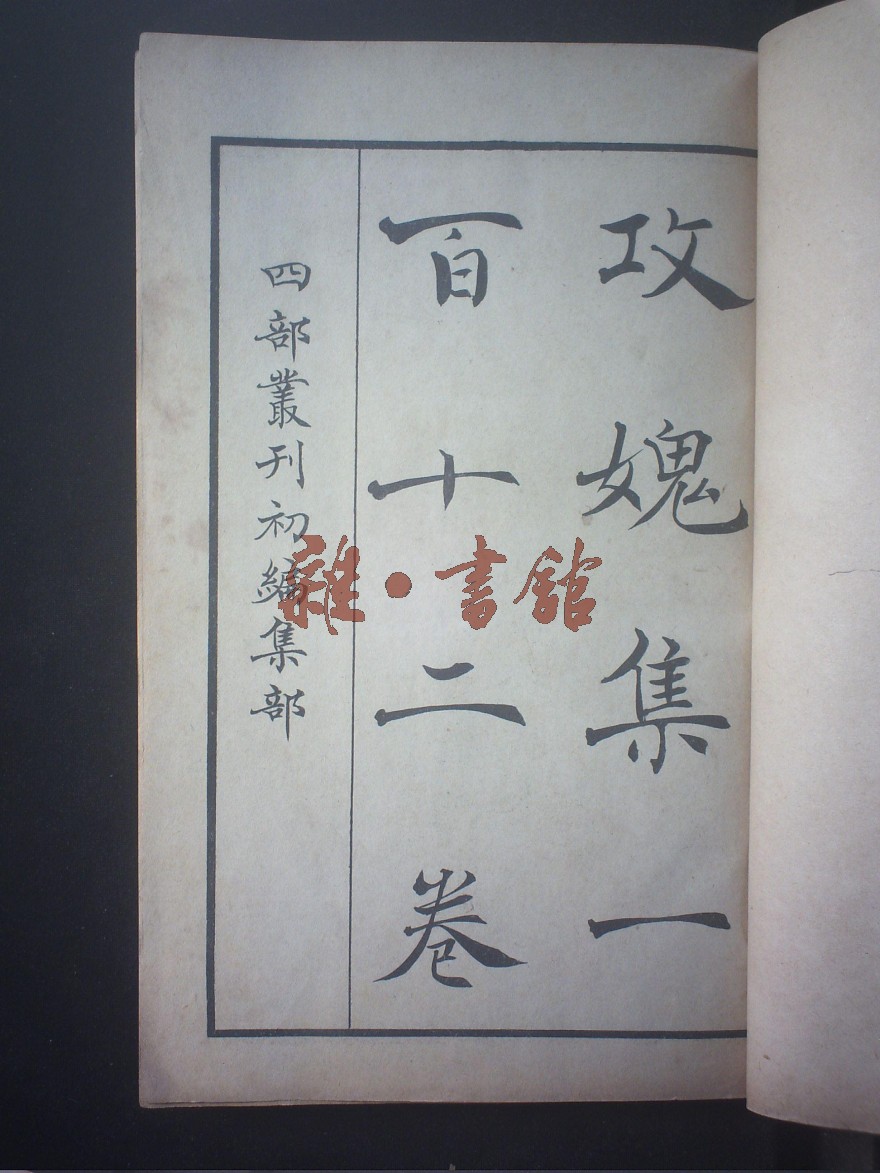 攻媿集一
百十二卷
四部叢刊初編集部
雜·書館